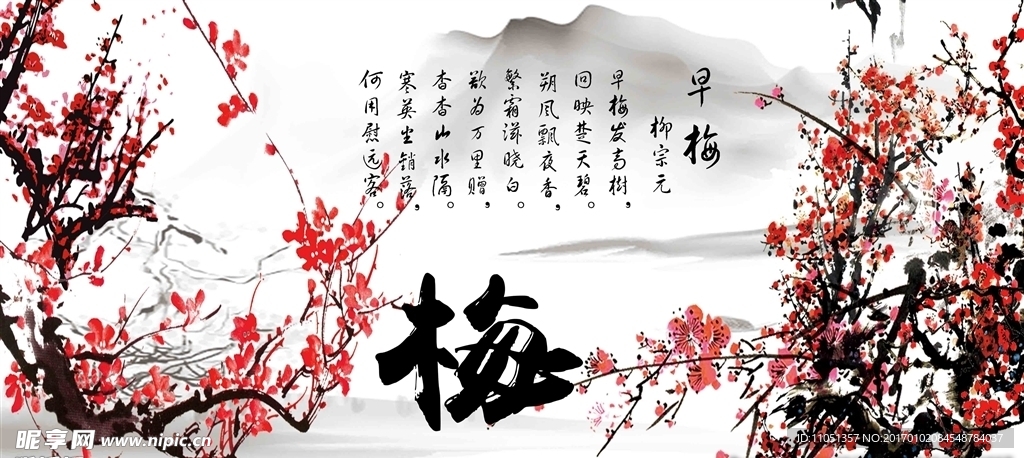 早梅
柳宗元
早梅发高樹，
回映楚天碧。
朔风飘夜香，
繁霜滋晓白。
欲为万里赠，
杳杳山水隔。
寒英坐销落，
何用慰远客。
梅
昵享网 www.nipic.cn
ID:11051357 NO:20170102084548784037